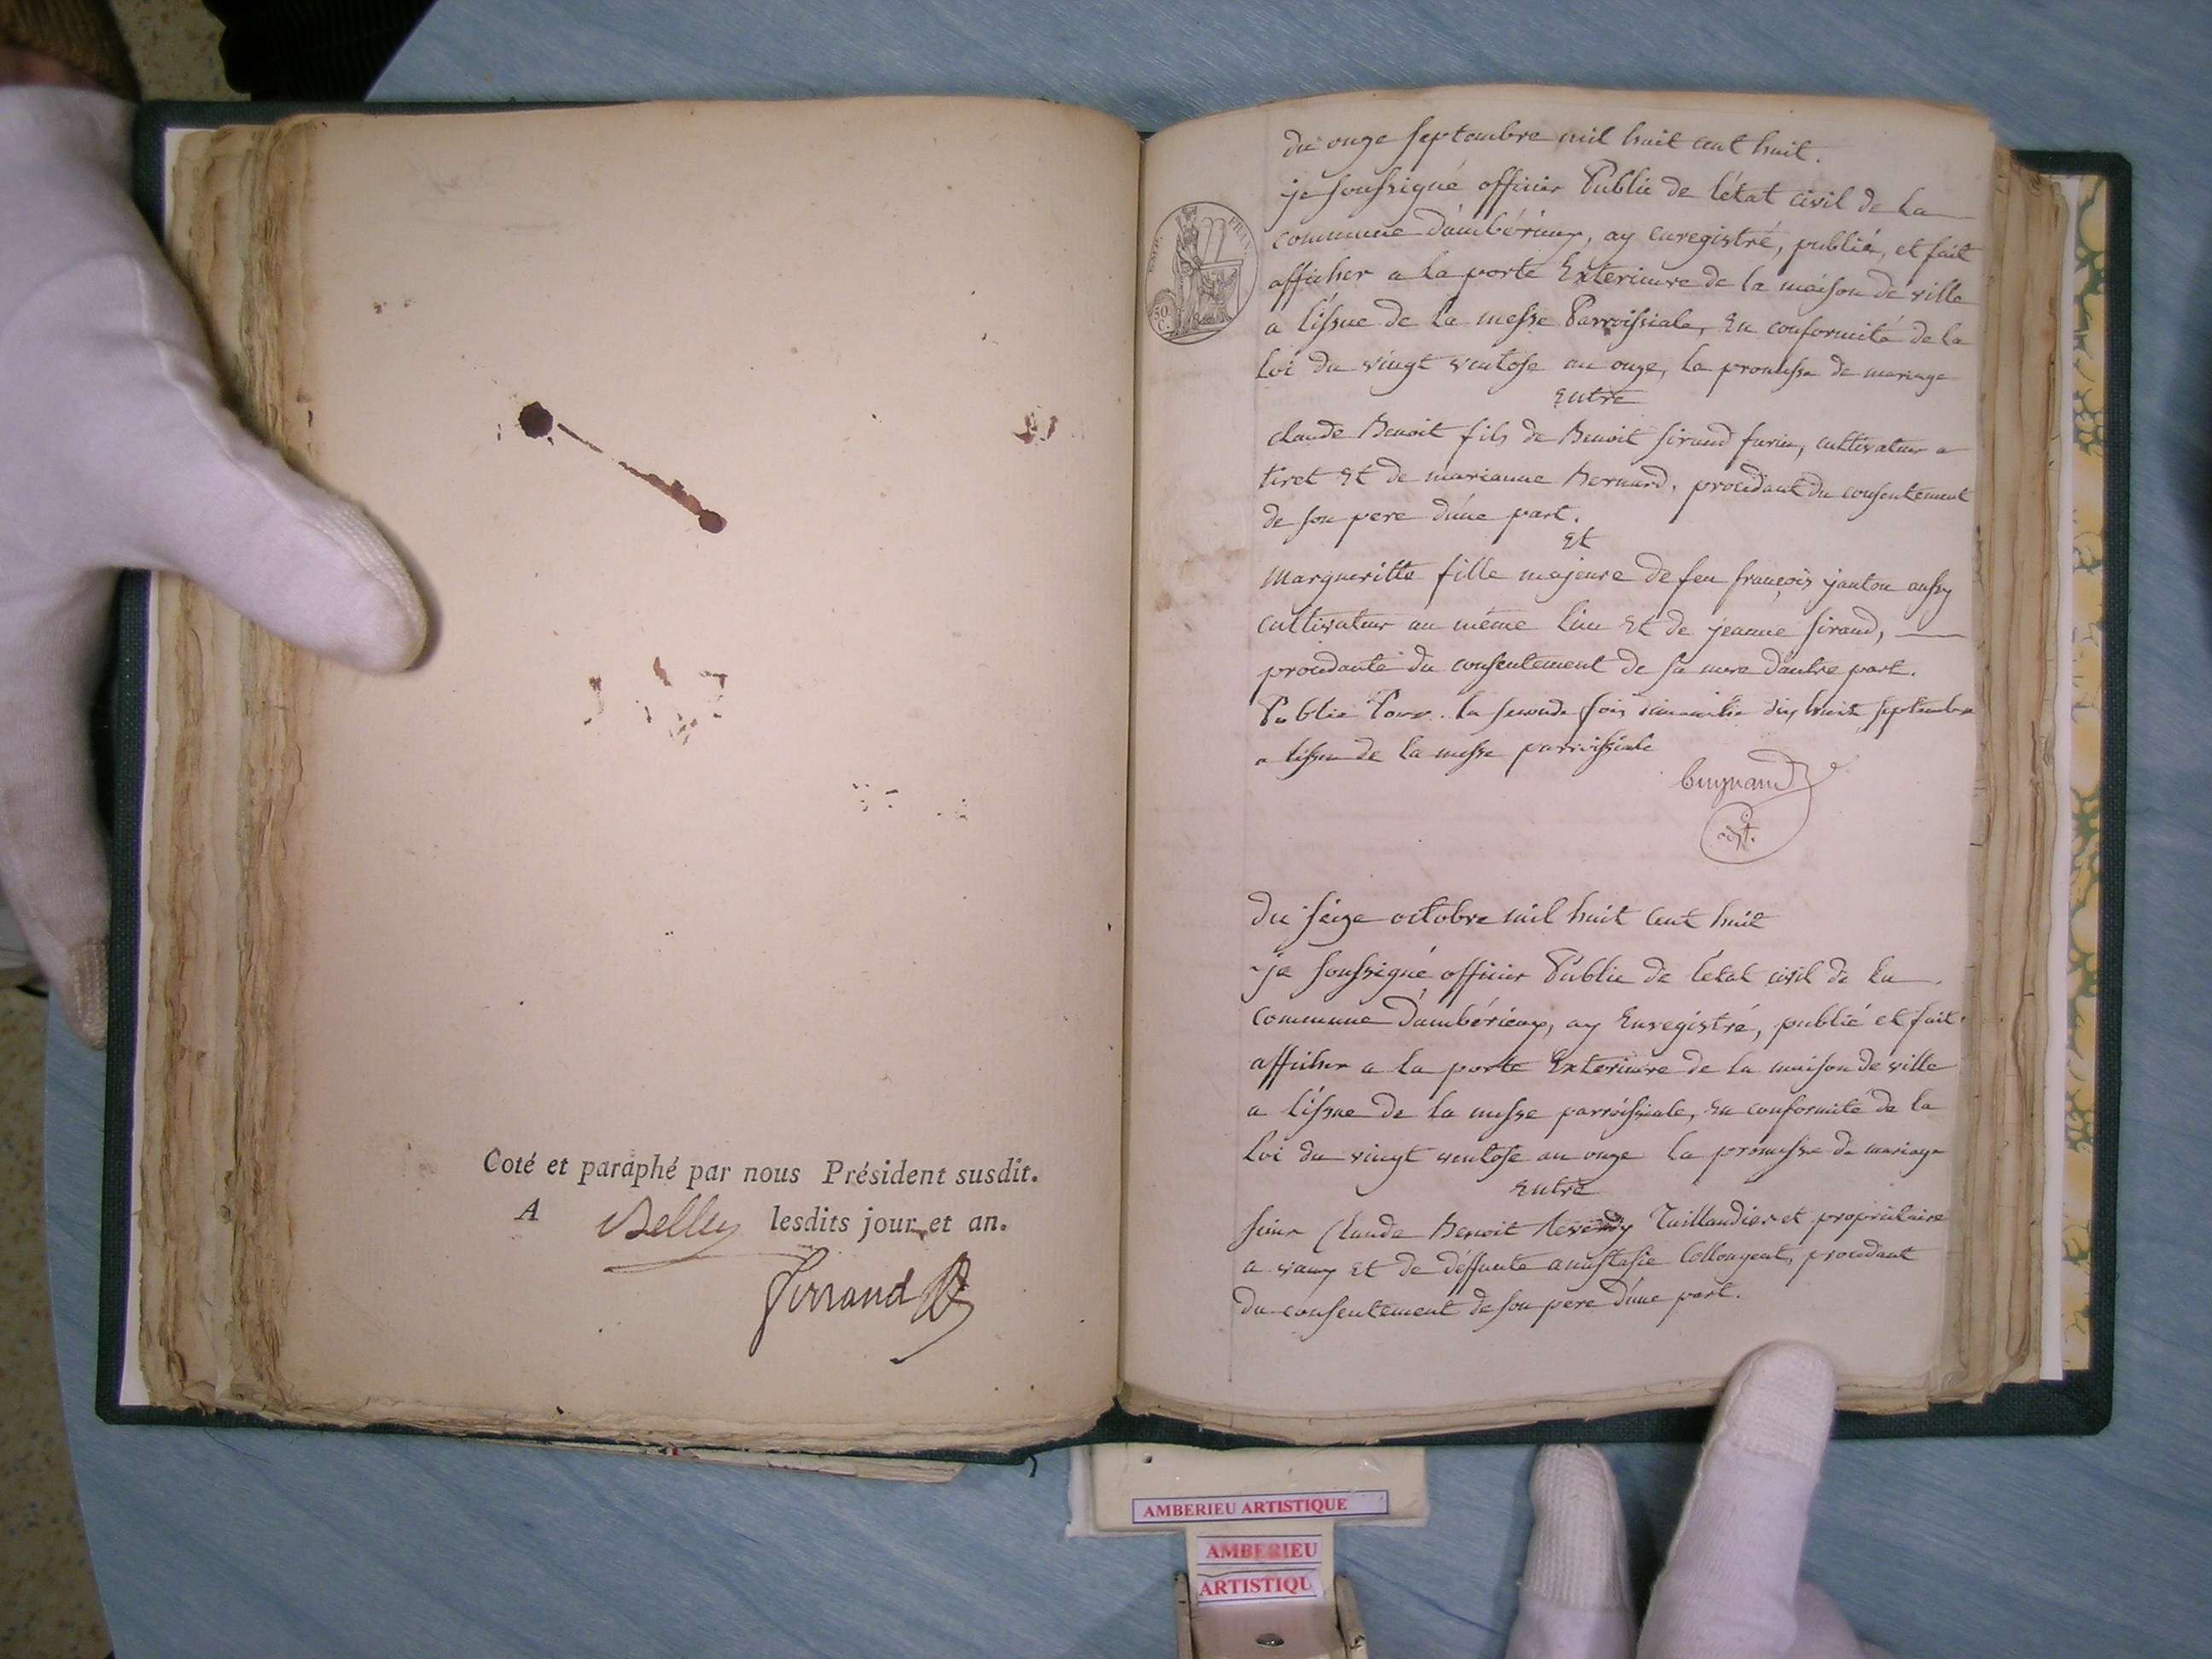 Coté et paraphé par nous Président susdit.
A Belley lesdits jour et an.
Ferrand
EMP. FRAN.
50 C.
du onze septembre mil huit cent huit.
je soussigné officier Public de létat civil de la
commune d'ambérieux, ay enregistré, publié, et fait
afficher a la porte Exterieure de la maison de ville
a l'issue de la messe Parroissiale, En conformité de la
Loi du vingt ventose an onze, la promesse de mariage
Entre
claude Benoit fils de Benoit sirand furin, cultivateur a
tiret Et de marianne Bernard, procédant du consentement
de son pere d'une part.
Et
Margueritte fille majeure de feu françois janton aussy
cultivateur au même lieu Et de jeanne sirand,
procédante du consentement de sa mere d'autre part.
Publié Pour la seconde fois dimanche dix huit septembre
a lissue de la messe parroissiale
Bugnand
adjt.
du seize octobre mil huit cent huit
je soussigné officier Public de létat civil de la
commune d'ambérieux, ay Enregistré, publié et fait
afficher a la porte Exterieure de la maison de ville
a l'issue de la messe parroissiale, En conformité de la
Loi du vingt ventose an onze la promesse de mariage
Entre
sieur Claude Benoit Taillandier et propriétaire
a vaux Et de déffunte anastasie Collonges, procédant
du consentement de son pere d'une part.
AMBERIEU ARTISTIQUE
AMBERIEU
ARTISTIQU